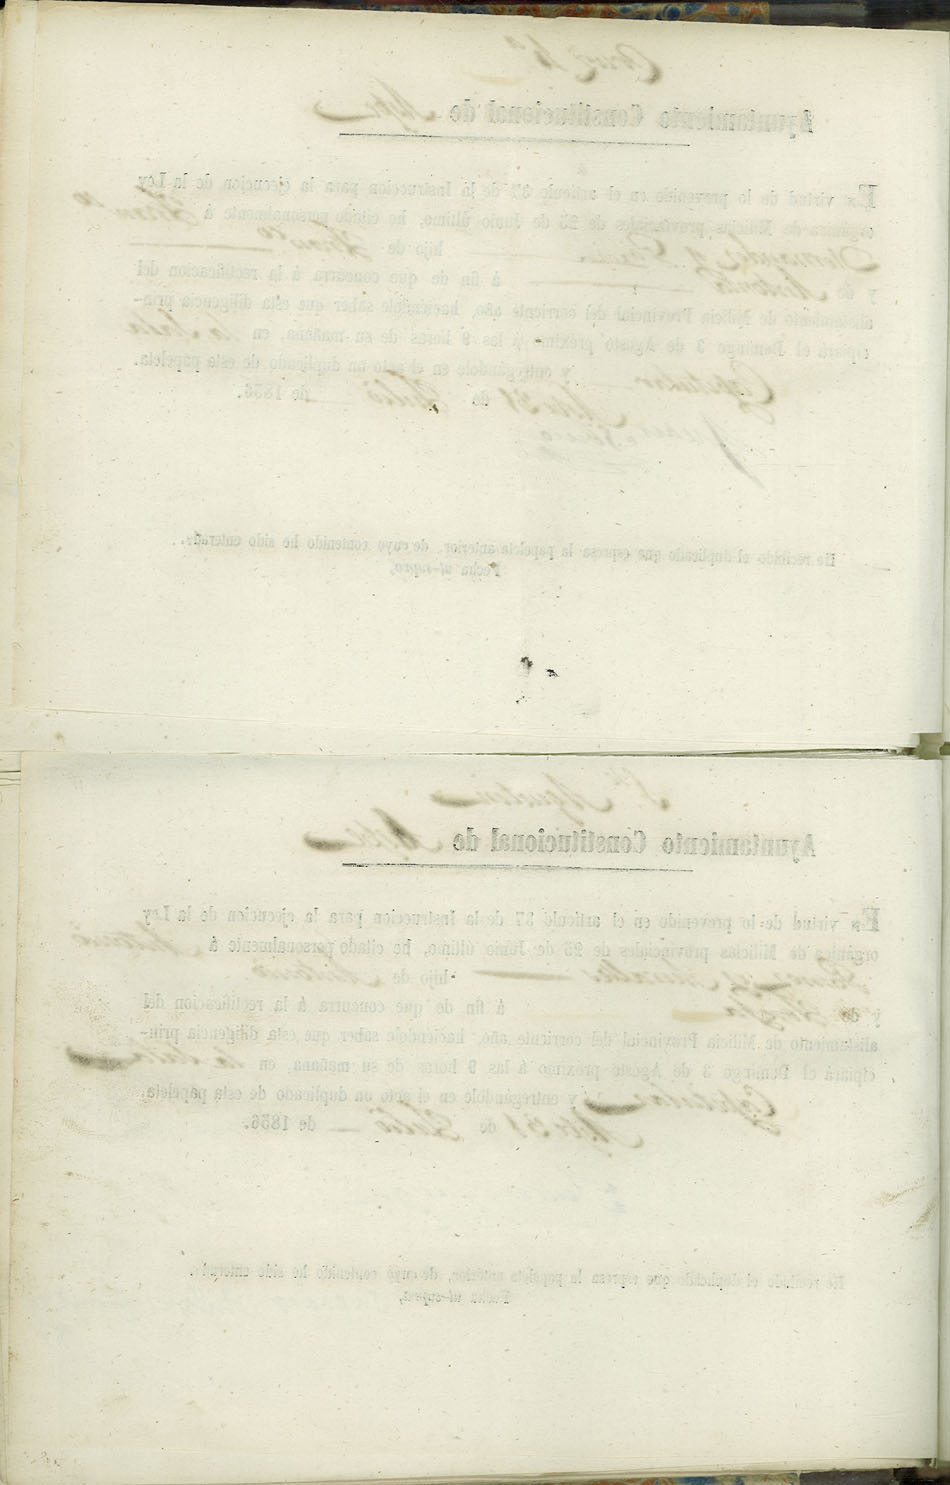 Ayuntamiento Constitucional de
En virtud de lo prevenido en el artículo 37 de la Instruccion para la ejecucion de la Ley
orgánica de Milicias provinciales de 25 de Junio último, he citado personalmente á
hijo de
y de Antonia á fin de que concurra á la rectificacion del
alistamiento de Milicia Provincial del corriente año, haciéndole saber que esta diligencia prin-
cipiará el Domingo 3 de Agosto próximo á las 9 horas de su mañana, en la Sala
Capitular y entregándole en el acto un duplicado de esta papeleta.
31 de Julio de 1856.
He recibido el duplicado que espresa la papeleta anterior, de cuyo contenido he sido enterado.
Fecha ut-supra,
Sn. Agustin
Ayuntamiento Constitucional de
En virtud de lo prevenido en el artículo 37 de la Instruccion para la ejecucion de la Ley
orgánica de Milicias provinciales de 25 de Junio último, he citado personalmente á Antonio
hijo de Antonio
y de á fin de que concurra á la rectificacion del
alistamiento de Milicia Provincial del corriente año, haciéndole saber que esta diligencia prin-
cipiará el Domingo 3 de Agosto próximo á las 9 horas de su mañana, en la Sala
Capitular y entregándole en el acto un duplicado de esta papeleta.
31 de Julio de 1856.
He recibido el duplicado que espresa la papeleta anterior, de cuyo contenido he sido enterado.
Fecha ut-supra,